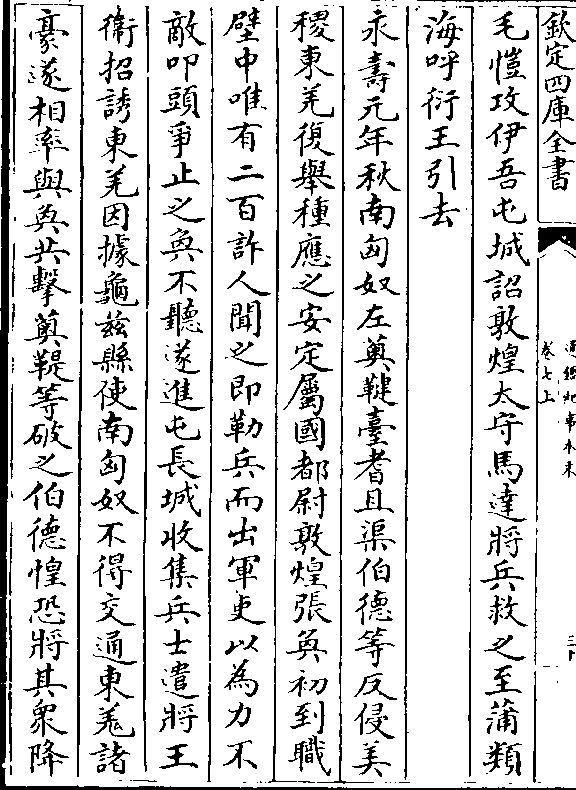 欽定四庫全書
通鑑紀事本末
卷七上
毛愷攻伊吾屯城詔敦煌太守馬達將兵救之至蒲類
海呼衍王引去
永壽元年秋南匈奴左薁鞬臺耆且渠伯德等反侵美
稷東羌復舉種應之安定屬國都尉敦煌張奐初到職
壁中唯有二百許人聞之即勒兵而出軍吏以為力不
敵叩頭爭止之奐不聽遂進屯長城收集兵士遣將王
衞招誘東羌因據龜茲縣使南匈奴不得交通東羌諸
豪遂相率與奐共擊薁鞮等破之伯德惶恐將其衆降